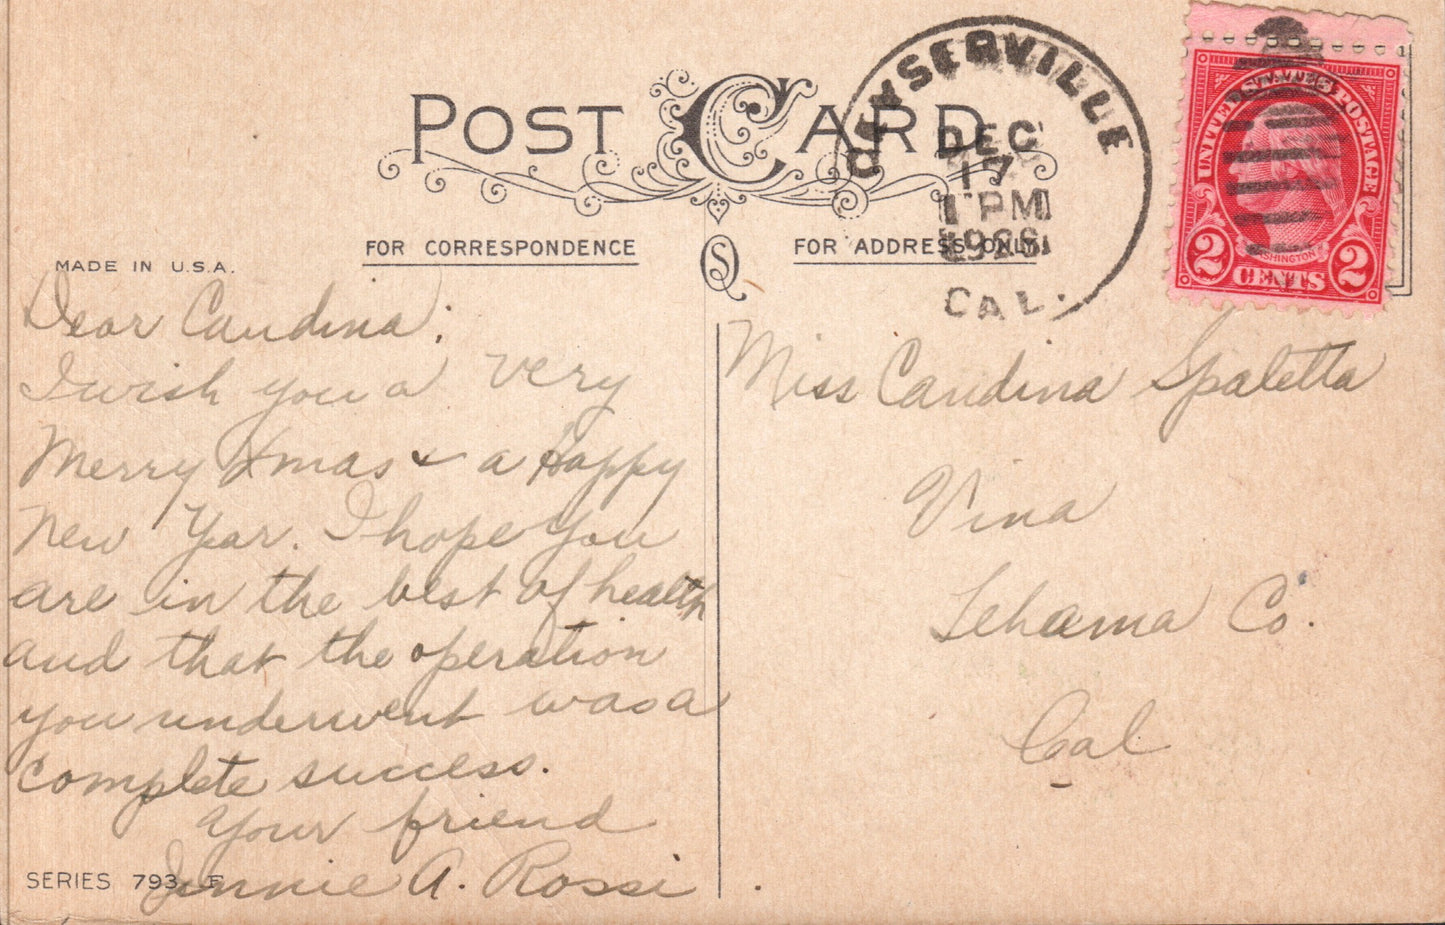 POST CARD
GEYSERVILLE
DEC
17
1 PM
CAL.
UNITED STATES POSTAGE
WASHINGTON
2 CENTS 2
FOR CORRESPONDENCE
FOR ADDRESS ONLY.
MADE IN U.S.A.
Dear Candina:
I wish you a very
Merry Xmas & a Happy
New Year. I hope you
are in the best of health
and that the operation
you underwent was a
complete success.
Your friend
Jennie A. Rossi
SERIES 793 F
Miss Candina Spaletta
Vina
Tehama Co.
Cal